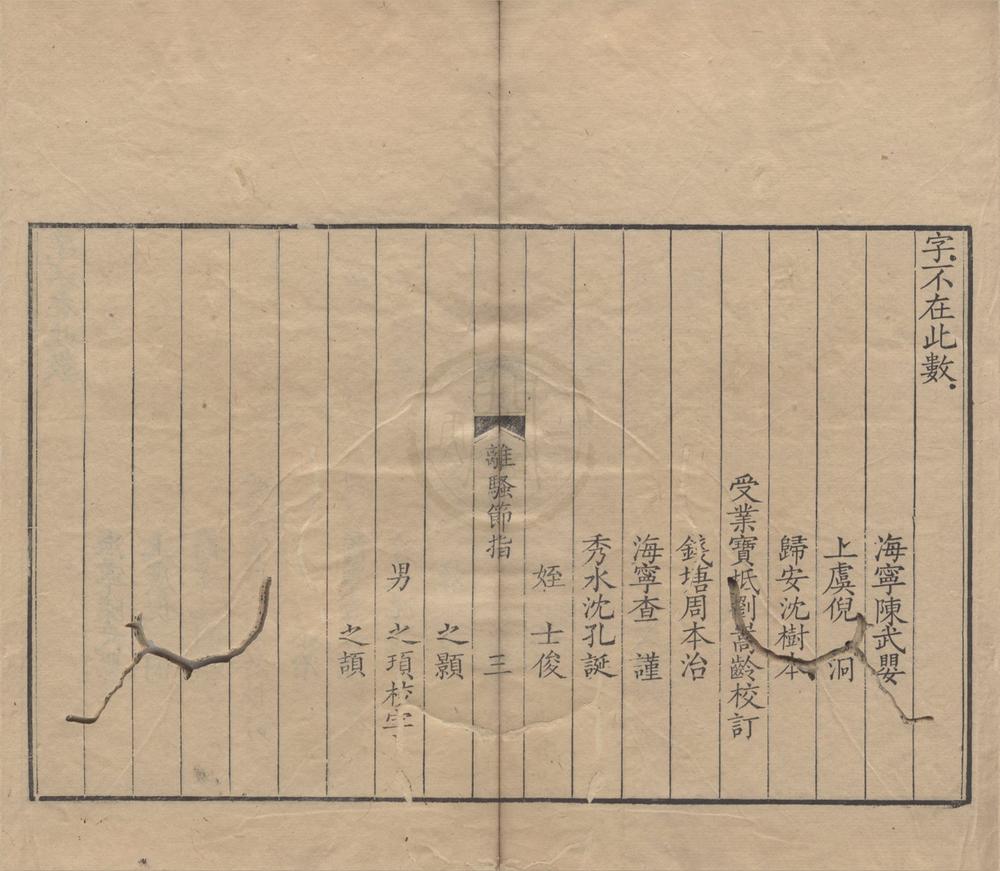 字不在此數
海寧陳武嬰
上虞倪　泂
歸安沈樹本
受業寶坻劉嵩齡校訂
錢塘周本治
海寧查　謹
秀水沈孔誕
姪　士俊
離騷節指　三
之顥
男　之頊校字
之頡